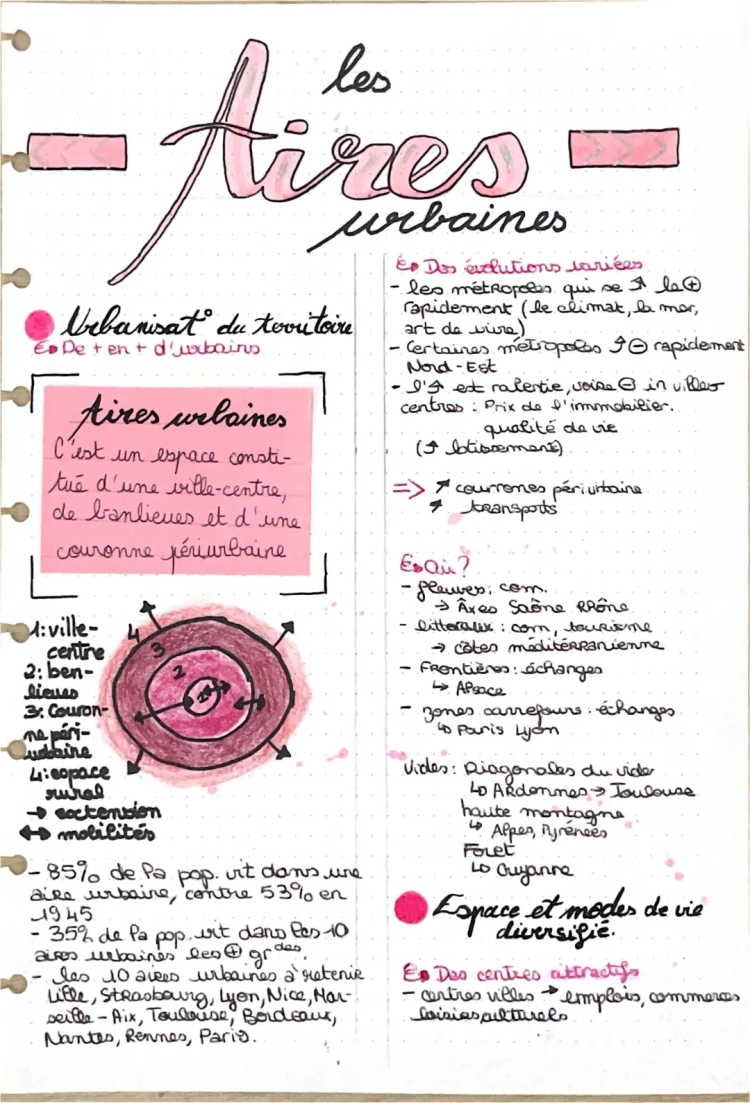 les
Aires
urbaines
Urbanisat° du territoire
De + en + d'urbains
Aires urbaines
C'est un espace consti-
tué d'une ville-centre,
de banlieues et d'une
couronne périurbaine
1: ville-
centre
2: ban-
lieues
3: Couron-
ne péri-
urbaine
4: espace
rural
→ extension
↔ mobilités
4
3
2
1
- 85% de la pop. vit dans une
aire urbaine, contre 53% en
1945
- 35% de la pop. vit dans les 10
aires urbaines les ⊕ gr des.
- les 10 aires urbaines à retenir
Lille, Strasbourg, Lyon, Nice, Mar-
seille - Aix, Toulouse, Bordeaux,
Nantes, Rennes, Paris.
Des évolutions variées
- les métropoles qui se ↗ le ⊕
rapidement (le climat, la mer,
art de vivre)
- Certaines métropoles ↗ ⊖ rapidement
Nord-Est
- l'↗ est ralentie, voire ⊖ in villes
centres : Prix de l'immobilier.
qualité de vie
(↗ lotissement)
⇒ ↗ couronnes périurbaine
↗ transports
Où?
- fleuves : com.
→ Axes Saône Rhône
- littoraux : com, tourisme
→ côtes méditérranienne
- Frontières : échanges
↳ Alsace
- zones carrefours : échanges
↳ Paris Lyon
Vides : Diagonales du vide
↳ Ardennes → Toulouse
haute montagne
↳ Alpes, Pyrénées
Foret
↳ Guyanne
Espace et modes de vie
diversifié.
Des centres attractifs
- centres villes → emplois, commerces
loisirs, culturels